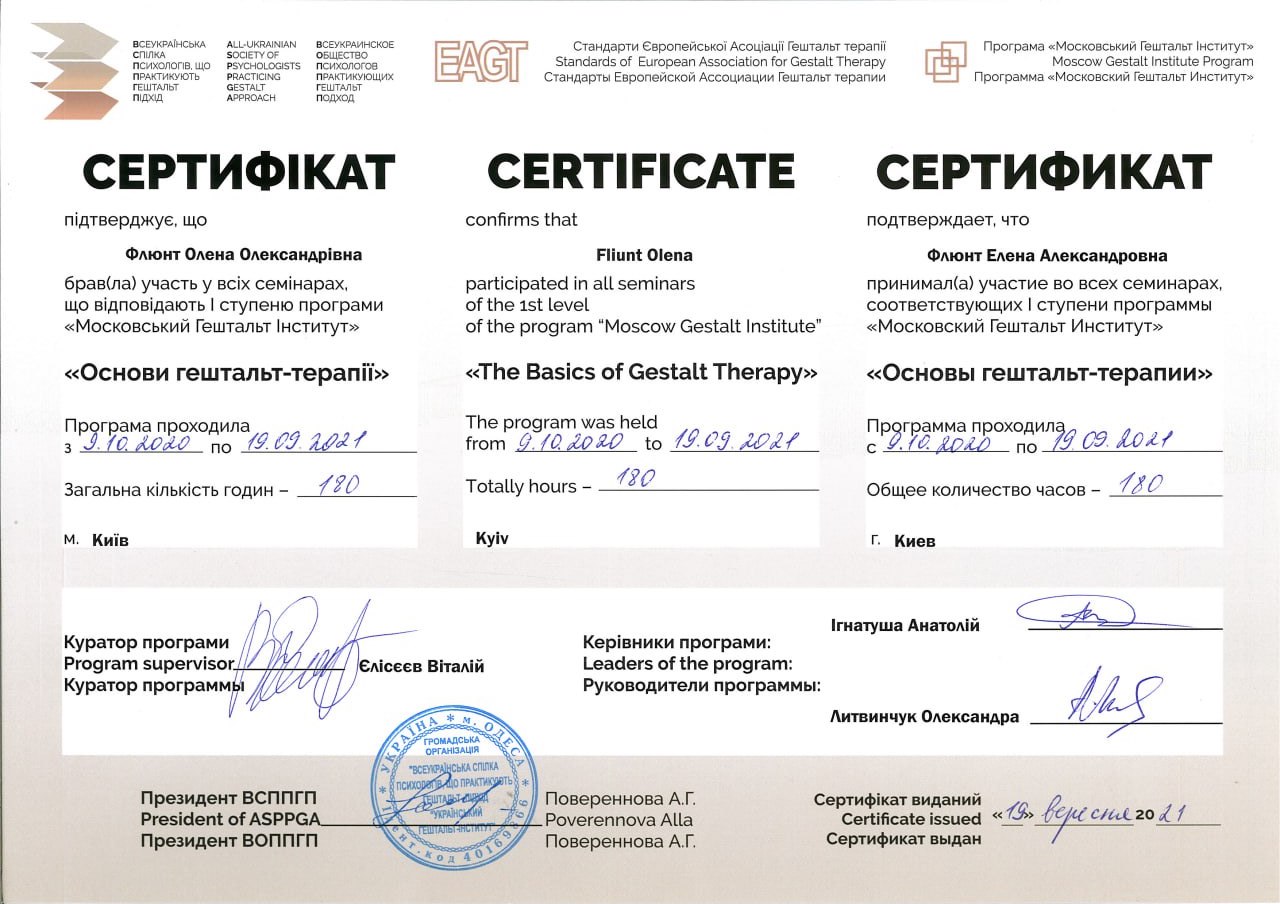 ВСЕУКРАЇНСЬКА
СПІЛКА
ПСИХОЛОГІВ, ЩО
ПРАКТИКУЮТЬ
ГЕШТАЛЬТ
ПІДХІД
ALL-UKRAINIAN
SOCIETY OF
PSYCHOLOGISTS
PRACTICING
GESTALT
APPROACH
ВСЕУКРАИНСКОЕ
ОБЩЕСТВО
ПСИХОЛОГОВ
ПРАКТИКУЮЩИХ
ГЕШТАЛЬТ
ПОДХОД
EAGT
Стандарти Європейської Асоціації Гештальт терапії
Standards of European Association for Gestalt Therapy
Стандарты Европейской Ассоциации Гештальт терапии
Програма «Московський Гештальт Інститут»
Moscow Gestalt Institute Program
Программа «Московский Гештальт Институт»
СЕРТИФІКАТ
підтверджує, що
Флюнт Олена Олександрівна
брав(ла) участь у всіх семінарах,
що відповідають I ступеню програми
«Московський Гештальт Інститут»
«Основи гештальт-терапії»
Програма проходила
з 9.10.2020 по 19.09.2021
Загальна кількість годин – 180
м. Київ
CERTIFICATE
confirms that
Fliunt Olena
participated in all seminars
of the 1st level
of the program “Moscow Gestalt Institute”
«The Basics of Gestalt Therapy»
The program was held
from 9.10.2020 to 19.09.2021
Totally hours – 180
Kyiv
СЕРТИФИКАТ
подтверждает, что
Флюнт Елена Александровна
принимал(а) участие во всех семинарах,
соответствующих I ступени программы
«Московский Гештальт Институт»
«Основы гештальт-терапии»
Программа проходила
с 9.10.2020 по 19.09.2021
Общее количество часов – 180
г. Киев
Куратор програми
Program supervisor
Куратор программы
Єлісєєв Віталій
Керівники програми:
Leaders of the program:
Руководители программы:
Ігнатуша Анатолій
Литвинчук Олександра
Президент ВСППГП
President of ASPPGA
Президент ВОППГП
УКРАЇНА * м. ОДЕСА *
ГРОМАДСЬКА
ОРГАНІЗАЦІЯ
"ВСЕУКРАЇНСЬКА СПІЛКА
ПСИХОЛОГІВ, ЩО ПРАКТИКУЮТЬ
ГЕШТАЛЬТ-ПІДХІД
"УКРАЇНСЬКИЙ
ГЕШТАЛЬТ-ІНСТИТУТ"
Ідент. код 40169866
Поверeннова А.Г.
Poverennova Alla
Поверeннова А.Г.
Сертифікат виданий
Certificate issued
Сертификат выдан
«19» вересня 2021